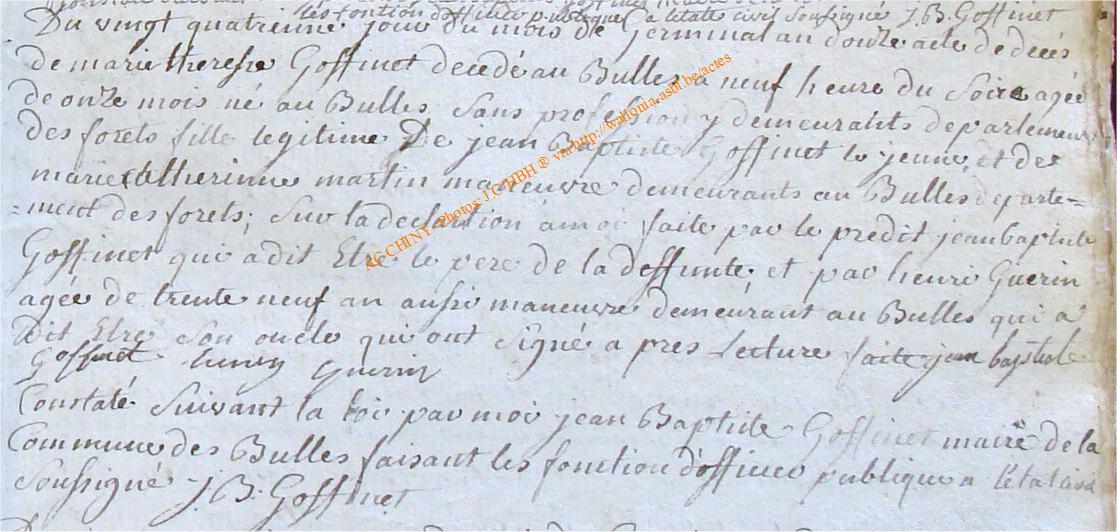 les fonction d'officier publique a l'état civil soussigné J. B. Goffinet
Du vingt quatrienne jour du mois de Germinal an douze acte de decés
de marie therese Goffinet decedé au Bulles a neuf heure du Soire agée
de onze mois né au Bulles Sans profession y demeurants departement
des forets fille legitime De jean Baptiste Goffinet le jeune et de
marie Catherinne martin maneuvre demeurants au Bulles departe=
=ment des forets; Sur la declaration a moi faite par le predit jean baptiste
Goffinet qui a dit Etre le pere de la deffunte et par henri Guerin
agée de trente neuf an aussi maneuvre demeurant au Bulles qui a
dit Etre Son oncle qui ont Signé a pres Lecture faite jean baptiste
Goffinet henry Guerin
Constaté Suivant la loi par moi jean Baptiste Goffinet maire de la
Commune des Bulles faisant les fonction d'officier publique a l'état civil
Soussigné J. B. Goffinet
AG CHINY Photos: J.C. HBH ® via http://wallonia.asbl.be/actes